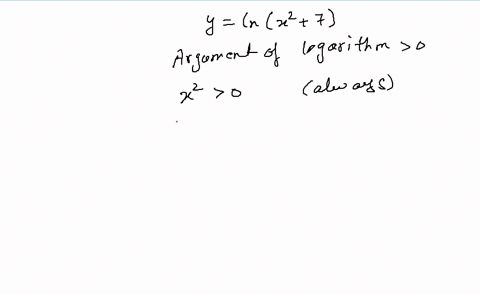 y = ln (x² + 7)
Argument of logarithm > 0
x² > 0 (always)